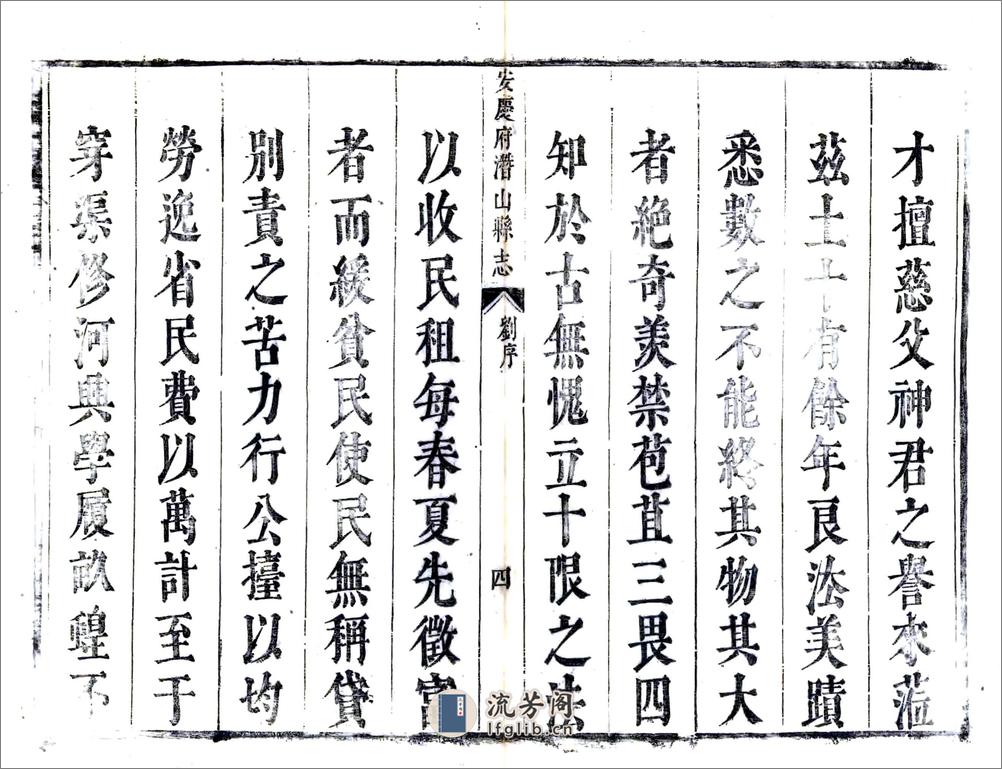 才擅慈父神君之譽來蒞
茲土十有餘年良法美蹟
悉數之不能終其物其大
者絶奇羨禁苞苴三畏四
知於古無愧立十限之法
安慶府潛山縣志
劉序
四
以收民租每春夏先徵富
者而緩貧民使民無稱貸
別責之苦力行公擡以均
勞逸省民費以萬計至于
穿渠修河興學履畝蝗不
流芳阁
lfglib.cn